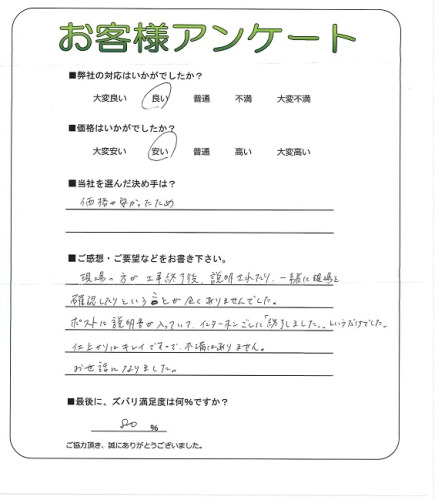 お客様アンケート
■弊社の対応はいかがでしたか？
大変良い 良い 普通 不満 大変不満
■価格はいかがでしたか？
大変安い 安い 普通 高い 大変高い
■当社を選んだ決め手は？
価格が安かったため
■ご感想・ご要望などをお書き下さい。
現場の方が工事終了後、説明されたり、一緒に現場を
確認したりということが全くありませんでした。
ポストに説明書が入っていて、インターホンごしに「終了しました。」というだけでした。
仕上がりはキレイですので、不満はありません。
お世話になりました。
■最後に、ズバリ満足度は何％ですか？
80 ％
ご協力頂き、誠にありがとうございました。